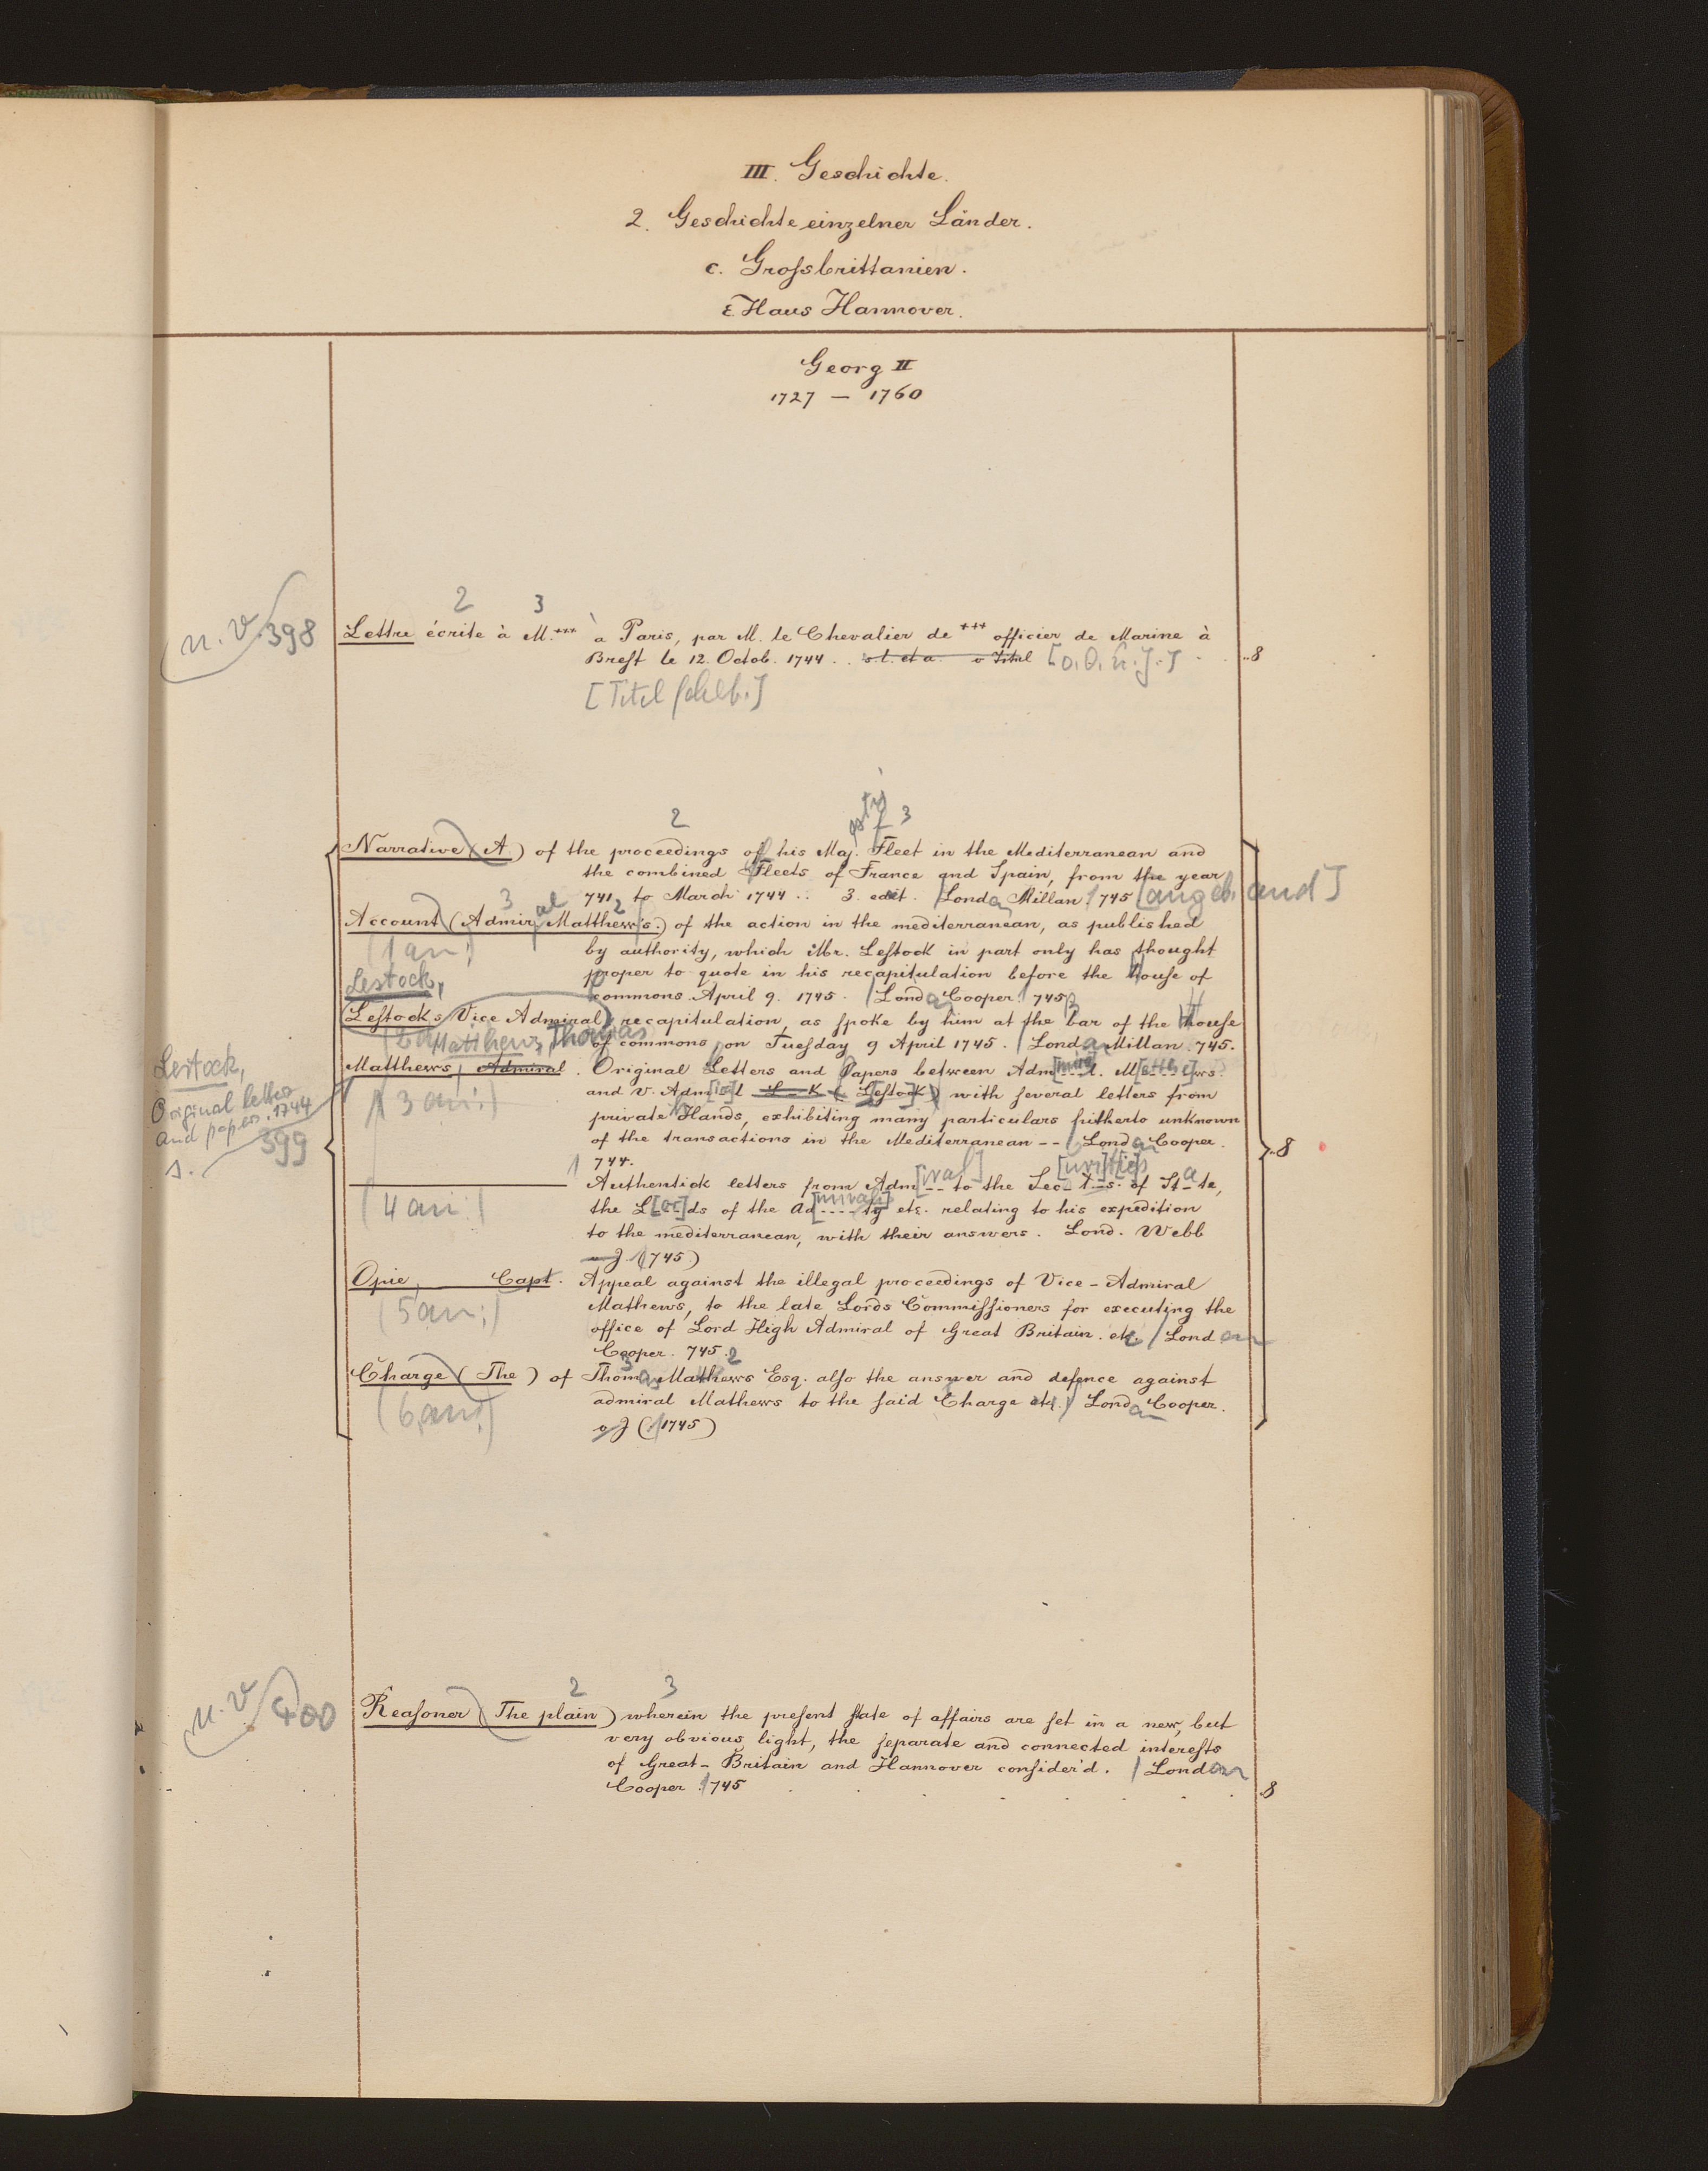 III. Geschichte.
2. Geschichte einzelner Länder.
c. Grossbrittanien.
ε. Haus Hannover.
Georg II
1727 — 1760
2 3
n. v. 398
Lettre écrite à M.*** à Paris, par M. le Chevalier de *** officier de Marine à
Brest le 12. Octob. 1744 . . s. l. et a. o Titel [o. O. u. J.] 8
[Titel fehlt.]
2 3
Narrative (A) of the proceedings of his Maj. Fleet in the Mediterranean and
the combined Fleets of France and Spain, from the year
741 to March 1744 .. 3. edit. London Millan 1745 [angeb. and]
3 2
Account (Admiral Matthews's.) of the action in the mediterranean, as published
(1 an:)
by authority, which Mr. Lestock in part only has thought
proper to quote in his recapitulation before the house of
Lestock,
commons April 9. 1745. London Cooper 745
Lestocks (Vice Admiral) recapitulation, as spoke by him at the bar of the House
(2 an:) Matthews, Thomas
of commons, on Tuesday 9 April 1745. London Millan 745.
Matthews, Admiral. Original Letters and Papers between Adm[ira]l. M[atthe]ws.
(3 an:)
and v. Adm[ira]l L—k (Lestock) with several letters from
private Hands, exhibiting many particulars hitherto unknown
of the transactions in the Mediterranean -- London Cooper.
1744.
Lestock,
Original letters
and papers. 1744
s. 399
Authentick letters from Adm[iral] to the Sec[re]t[arie]s of State,
(4 an:)
the L[or]ds of the Ad[miral]ty etc. relating to his expedition
to the mediterranean, with their answers. Lond. Webb
o J. (1745)
Opie, Capt. Appeal against the illegal proceedings of Vice-Admiral
(5 an:)
Mathews, to the late Lords Commissioners for executing the
office of Lord High Admiral of Great Britain. etc. London
Cooper. 745.
3 2
Charge (The) of Thomas Mathews Esq. also the answer and defence against
(6 an:)
admiral Mathews to the said Charge etc. London Cooper.
o J (1745)
8
2 3
n. v. 400
Reasoner (The plain) wherein the present state of affairs are set in a new, but
very obvious light, the separate and connected interests
of Great-Britain and Hannover consider'd. London
Cooper 1745 8